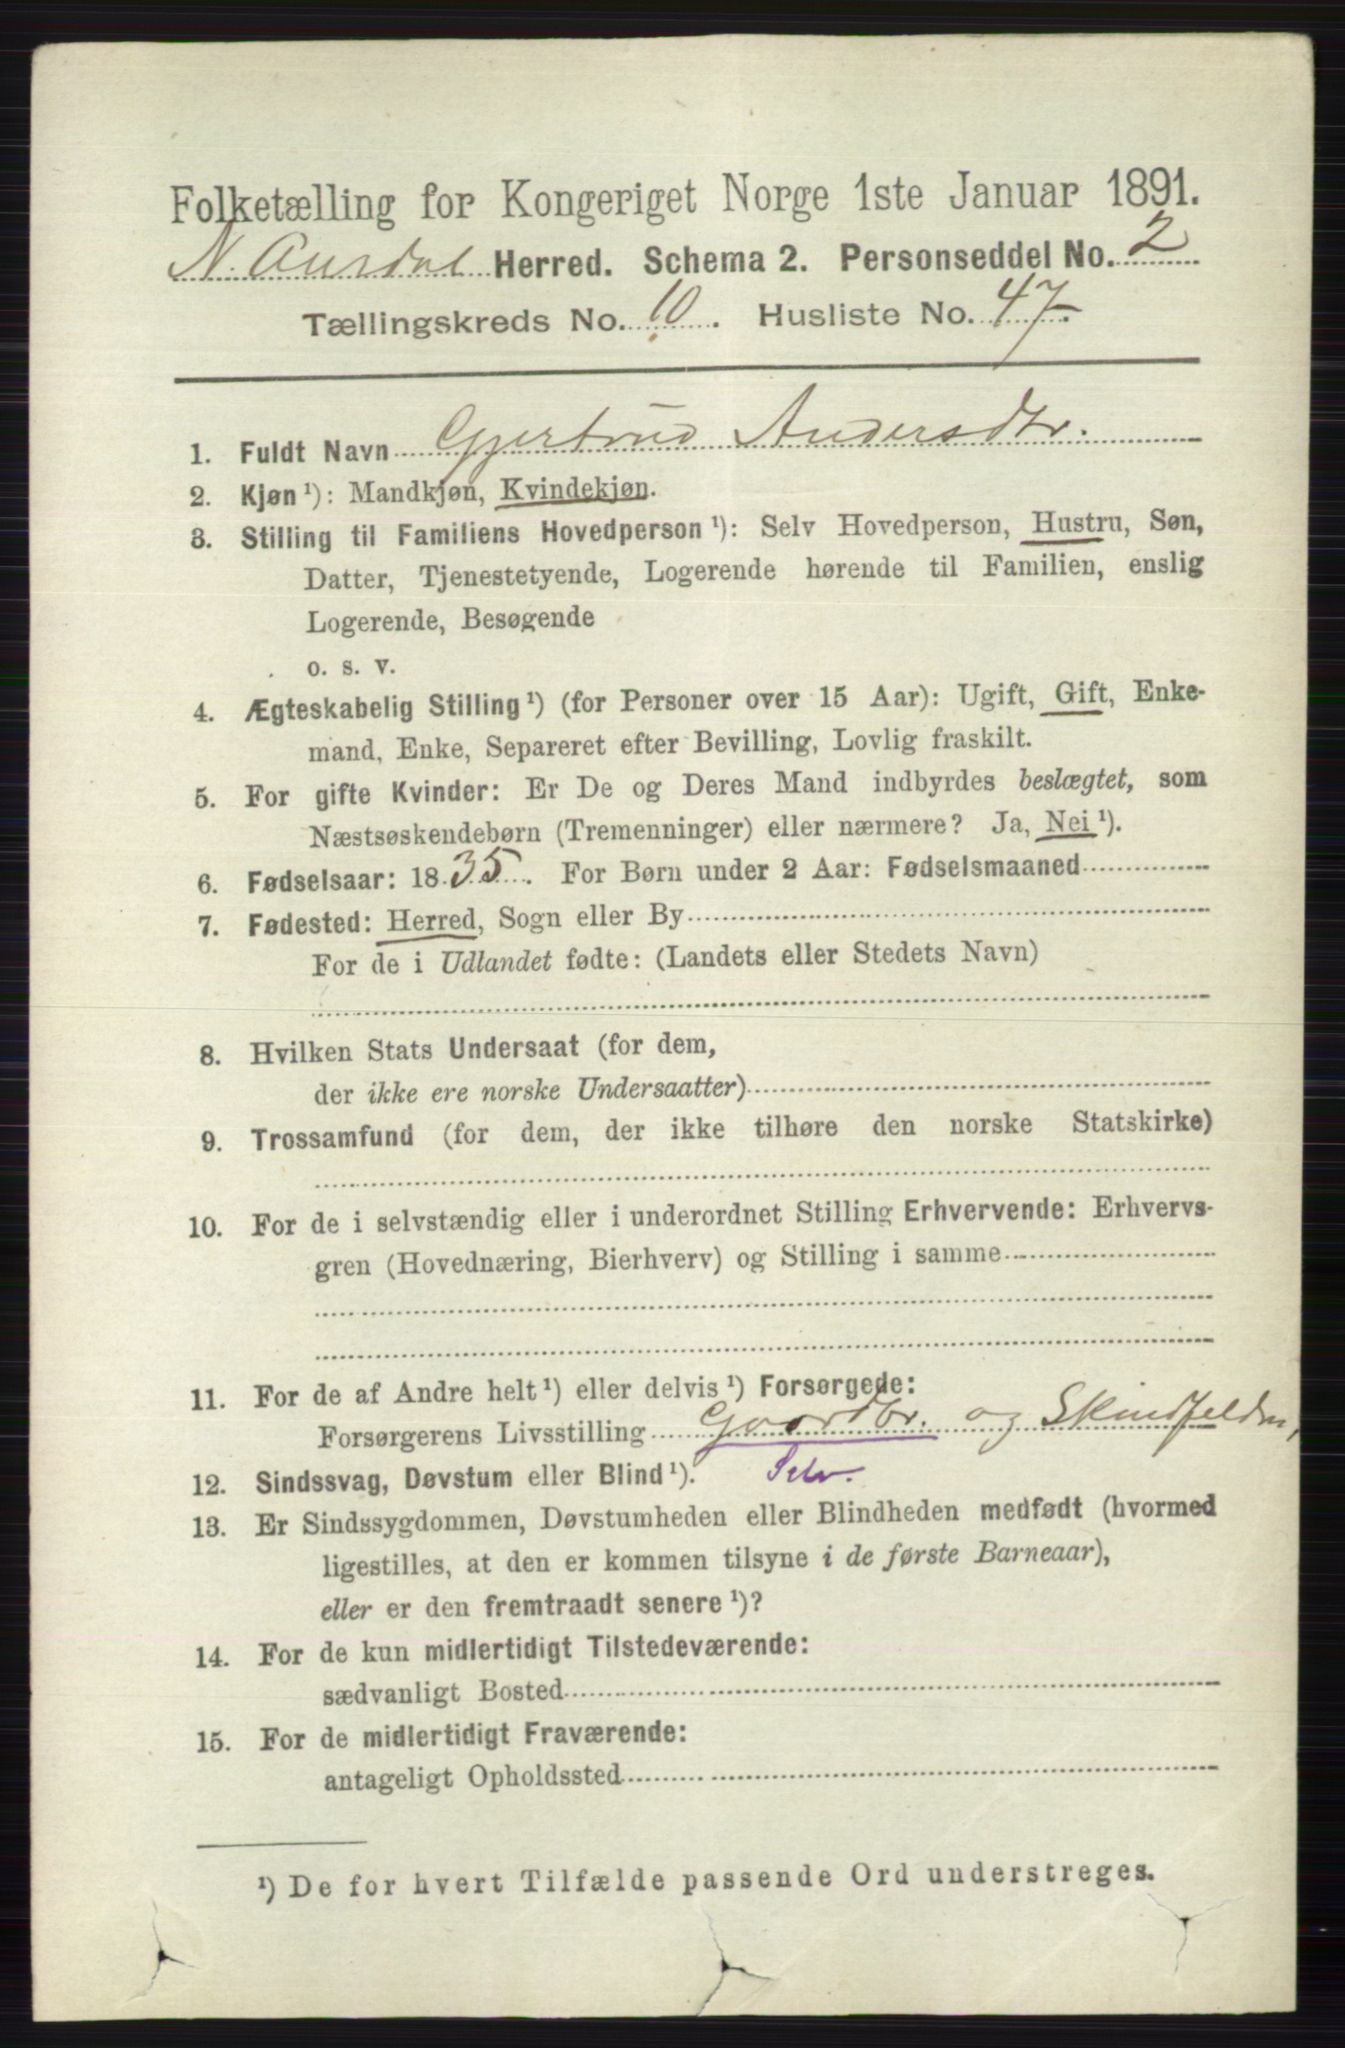 Folketælling for Kongeriget Norge 1ste Januar 1891.
N. Aurdal Herred. Schema 2. Personseddel No. 2
Tællingskreds No. 10. Husliste No. 47.
1. Fuldt Navn Gjertrud Andersdtr.
2. Kjøn ¹): Mandkjøn, Kvindekjøn.
3. Stilling til Familiens Hovedperson ¹): Selv Hovedperson, Hustru, Søn,
Datter, Tjenestetyende, Logerende hørende til Familien, enslig
Logerende, Besøgende
o. s. v.
4. Ægteskabelig Stilling ¹) (for Personer over 15 Aar): Ugift, Gift, Enke-
mand, Enke, Separeret efter Bevilling, Lovlig fraskilt.
5. For gifte Kvinder: Er De og Deres Mand indbyrdes beslægtet, som
Næstsøskendebørn (Tremenninger) eller nærmere? Ja, Nei ¹).
6. Fødselsaar: 1835. For Børn under 2 Aar: Fødselsmaaned
7. Fødested: Herred, Sogn eller By
For de i Udlandet fødte: (Landets eller Stedets Navn)
8. Hvilken Stats Undersaat (for dem,
der ikke ere norske Undersaatter)
9. Trossamfund (for dem, der ikke tilhøre den norske Statskirke)
10. For de i selvstændig eller i underordnet Stilling Erhvervende: Erhvervs-
gren (Hovednæring, Bierhverv) og Stilling i samme
11. For de af Andre helt ¹) eller delvis ¹) Forsørgede:
Forsørgerens Livsstilling Gaardbr. og
12. Sindssvag, Døvstum eller Blind ¹). Selv.
13. Er Sindssygdommen, Døvstumheden eller Blindheden medfødt (hvormed
ligestilles, at den er kommen tilsyne i de første Barneaar),
eller er den fremtraadt senere ¹)?
14. For de kun midlertidigt Tilstedeværende:
sædvanligt Bosted
15. For de midlertidigt Fraværende:
antageligt Opholdssted
¹) De for hvert Tilfælde passende Ord understreges.